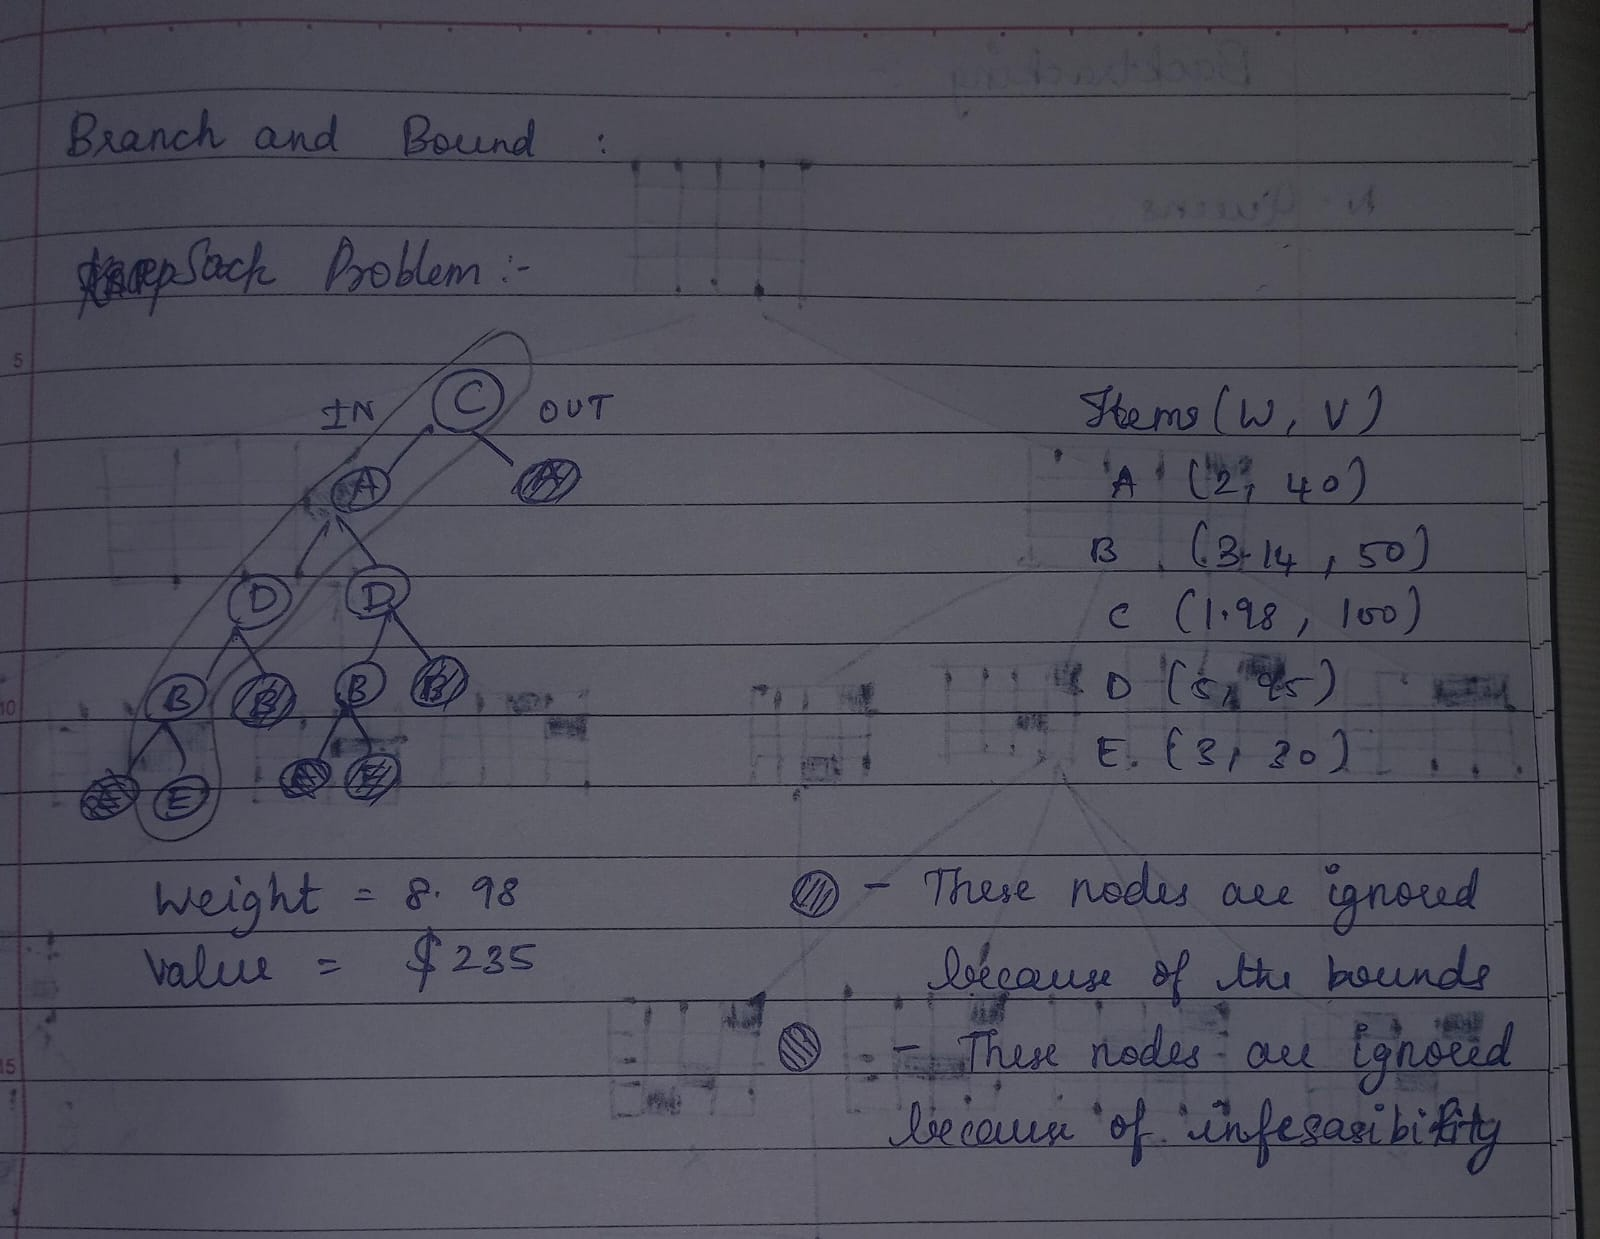 Branch and Bound :
KnapSack Problem :-
C
IN OUT
A A
D D
B B B B
E E E E
Items (W, V)
A (2, 40)
B (3.14, 50)
C (1.98, 100)
D (5, 95)
E. (3, 30)
Weight = 8.98
Value = $235
- These nodes are ignored
because of the bounds
- These nodes are ignored
because of infesasibility